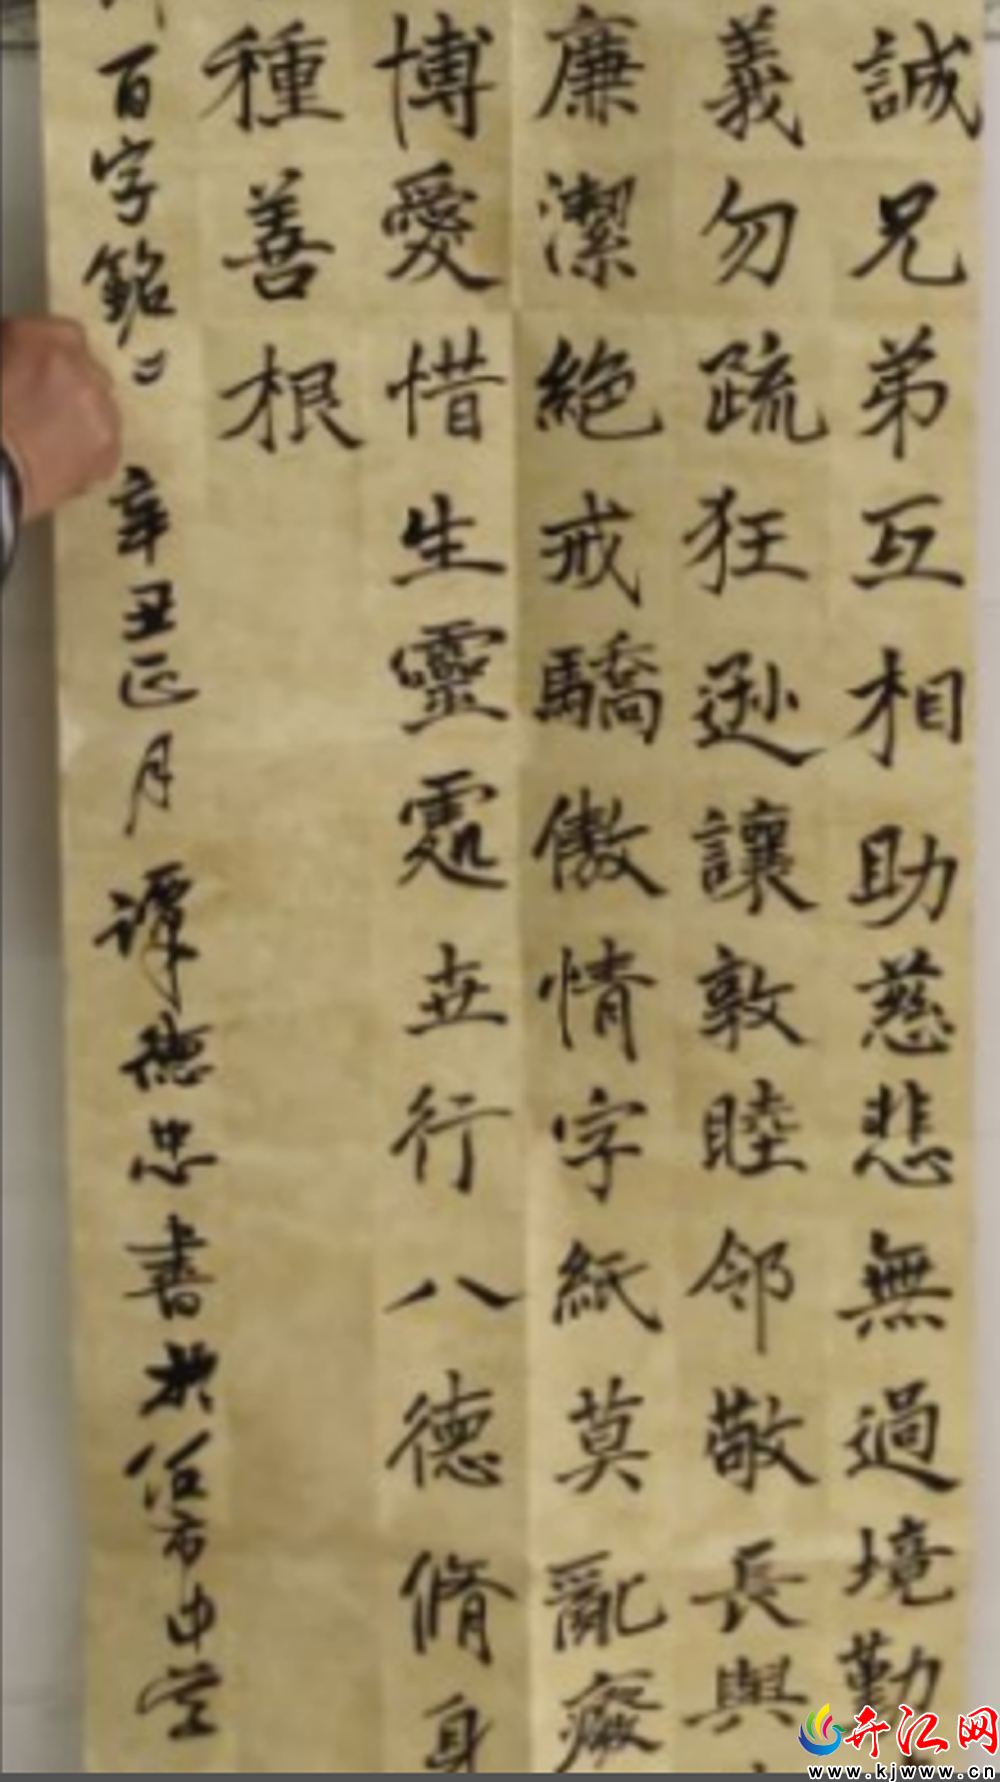 誠兄弟互相助慈悲無過境勤
義勿疏狂遜讓敦睦邻敬長與
廉潔絶戒驕傲情字紙莫亂廢
博愛惜生靈處世行八德脩身
種善根
百字銘二 辛丑正月譚德忠書於伍市中堂
开江网
www.kjwww.cn